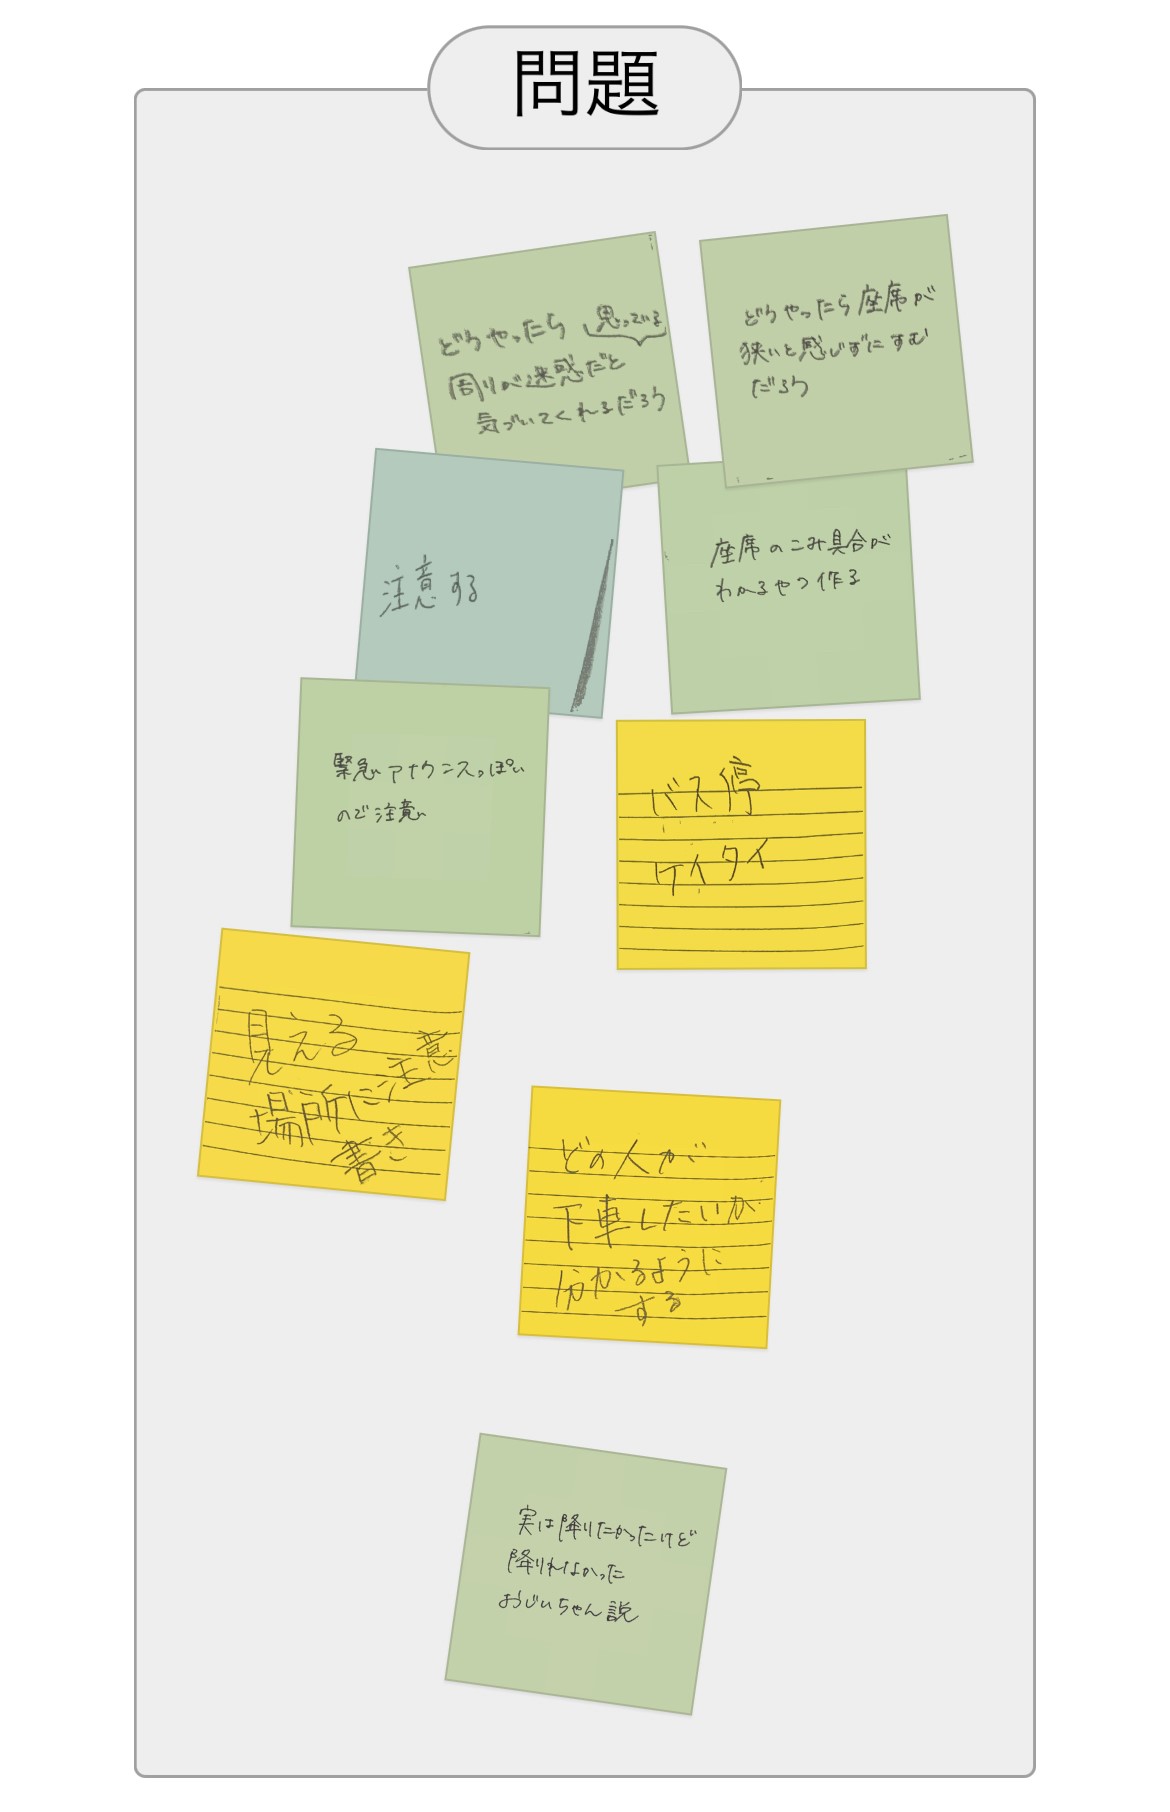 問題
どうやったら 思っている
周りが迷惑だと
気づいてくれるだろう
どうやったら座席が
狭いと感じずにすむ
だろう
注意する
座席のこみ具合が
わかるやつ作る
緊急アナウンスっぽい
ので注意
バス停
ケイタイ
見える
場所に注意
書き
どの人が
下車したいか
分かるように
する
実は降りたかったけど
降りれなかった
おじいちゃん説